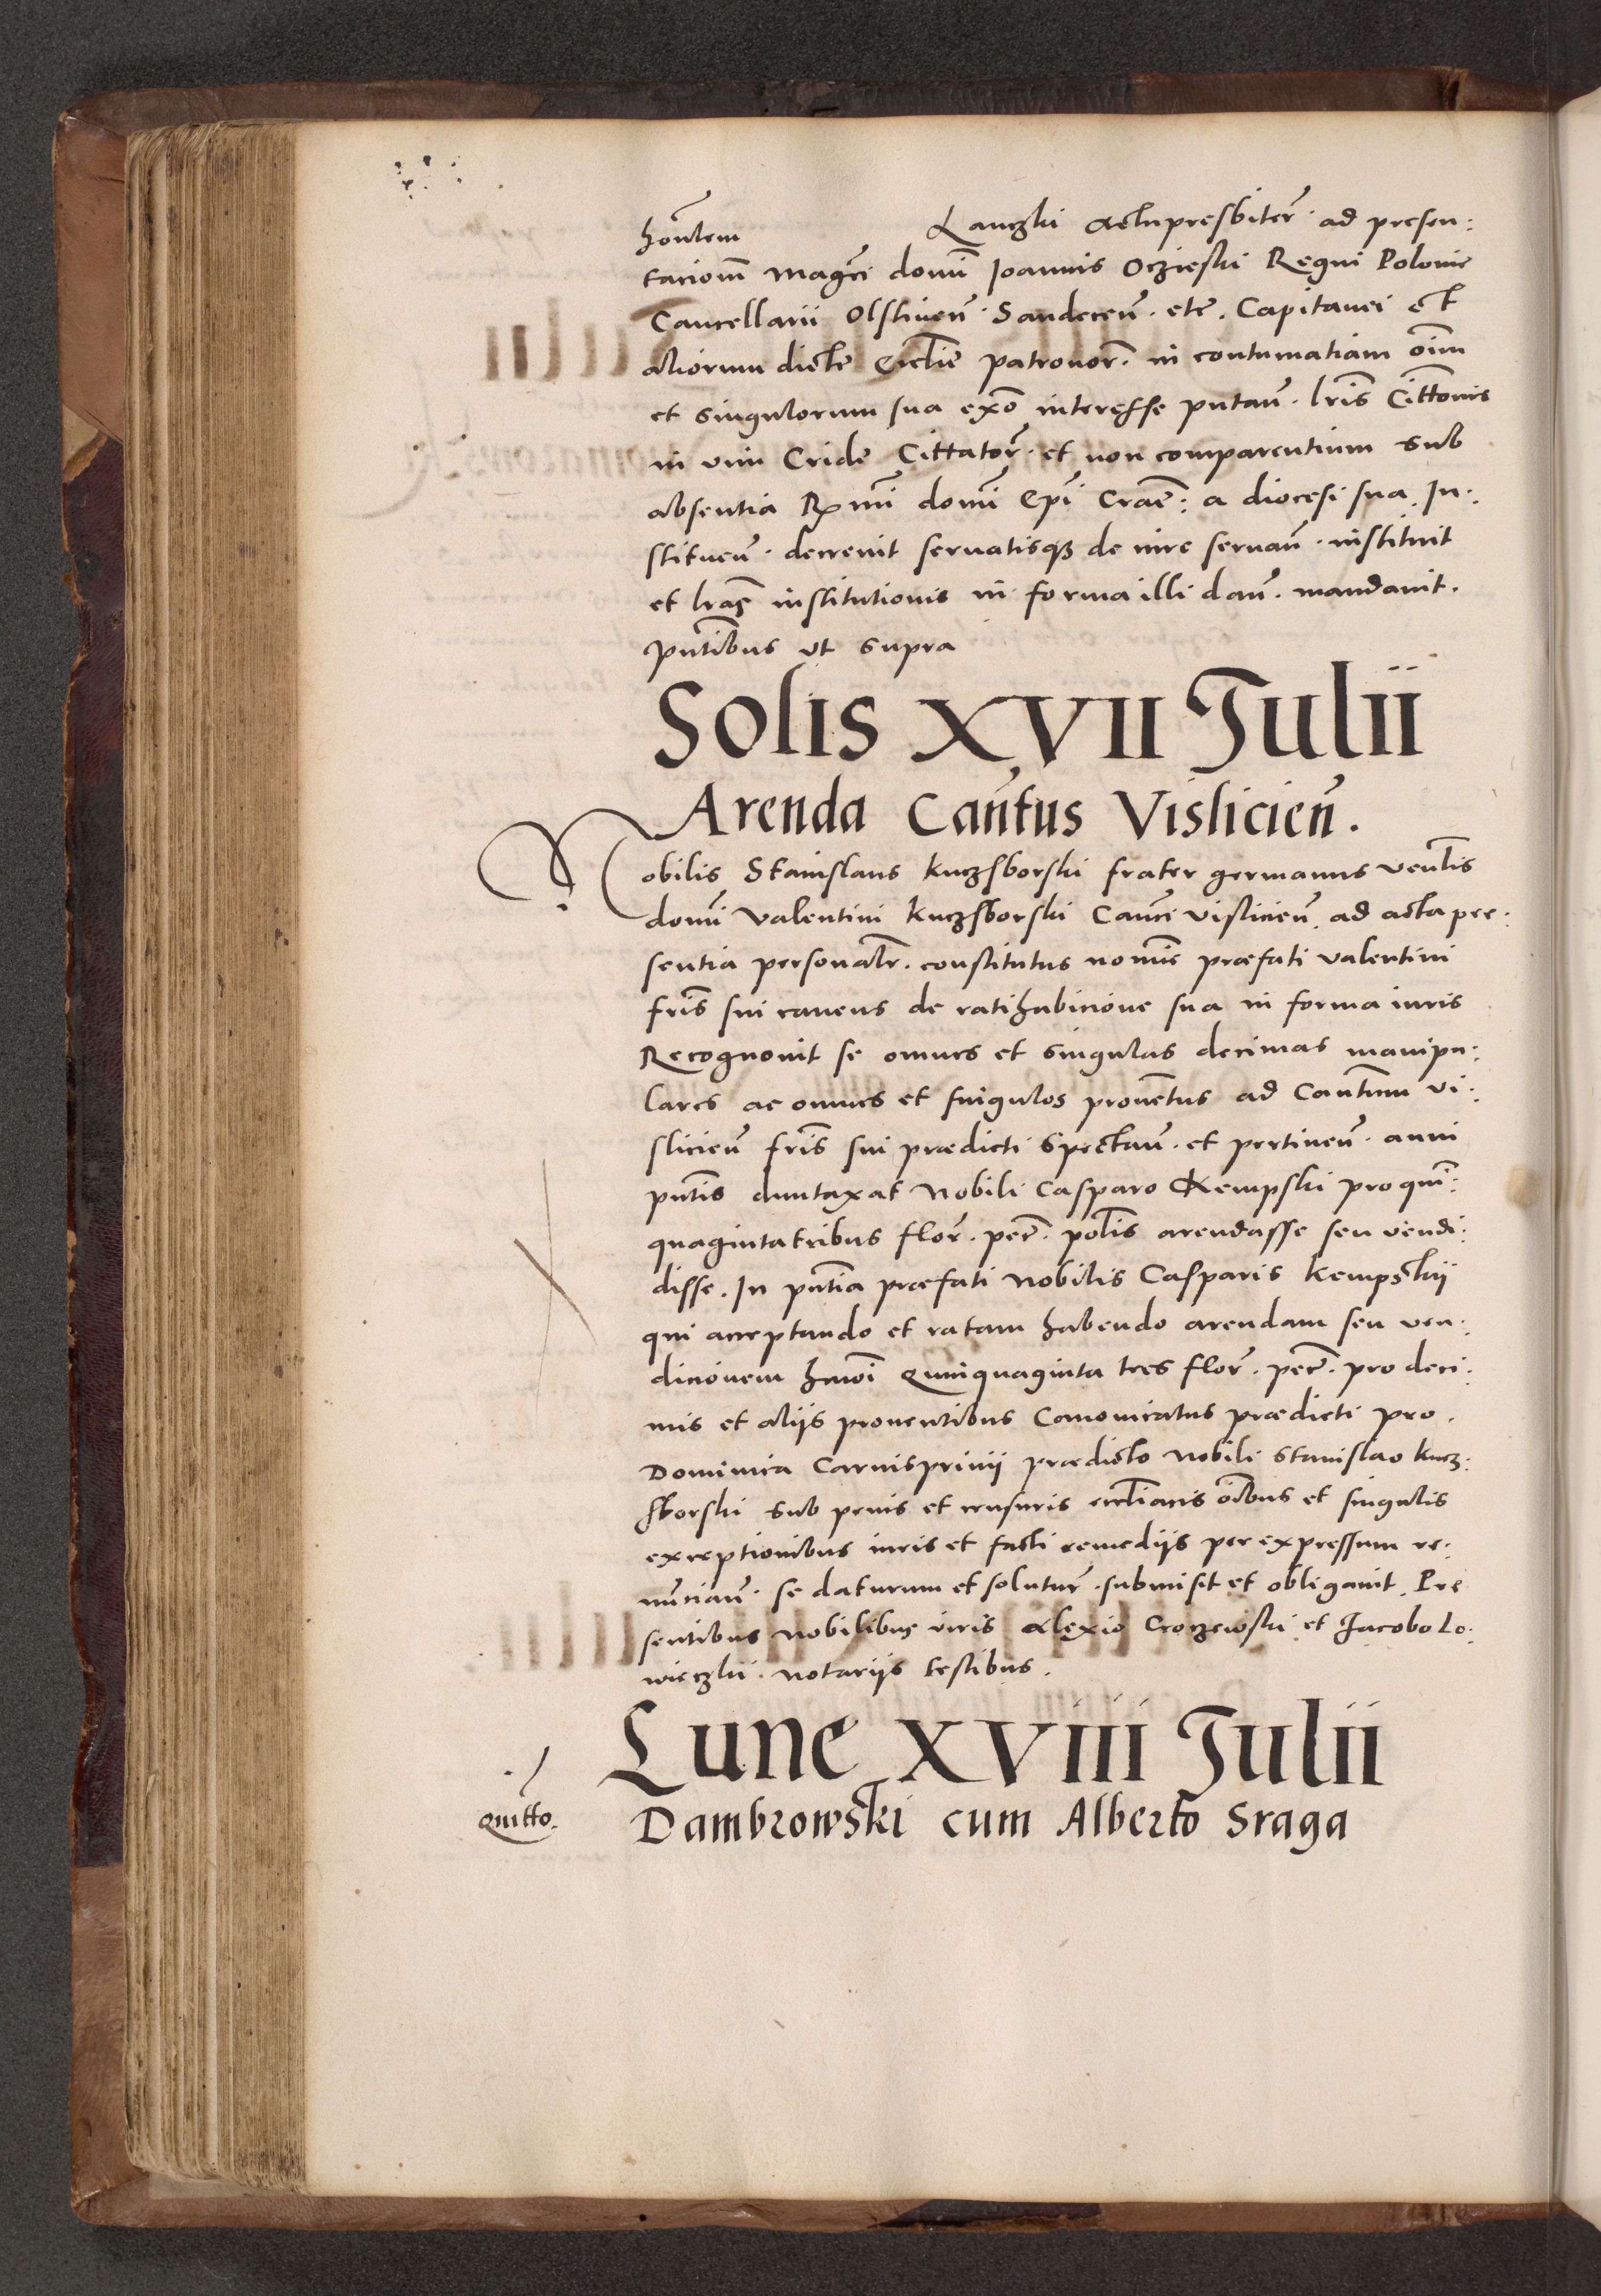 hon̄tem Lanczki Actupresbiter̄ · ad presen:
tacionē mag̃ci domī Ioannis Oczieski Regni Polonie
Cancellarii Olstinen̄ · Sandecen̄ · etc̄ . Capitanei et
aliorum dicte Eccl̄ie patronor̄ · in contumatiam oīm
et singulorum sua ex̄o interesse putan̄ · lr̄is Citt̄onis
in vim Cride Cittator̄ · et non comparentium sub
absentia R̄mi domī Ep̄i Crac̄ : a diocesi sua . In:
stituen̄ · decrevit servatisq₃ de iure servan̄ · instituit
et lr̄as institutionis in forma illi dan̄ · mandavit .
pn̄tibus ut supra
Solis XVII Julii
Arenda Can̄tus Vislicien̄ .
Nobilis Stanislaus Kuczsborski frater germanus ven̄lis
domī Valentini Kuczsborski Can̄ci Vislicien̄ . ad acta pre:
sentia personalr̄ . constitutus nomīe præfati Valentini
fr̄is sui cavens de ratihabicione sua in forma iuris
Recognovit se omnes et singulas decimas manipu:
lares ac omnes et singulos proven̄tus ad Can̄tum Vi:
slicien̄ fr̄is sui prædicti spectan̄ · et pertinen̄ · anni
pn̄tis duntaxat Nobili Casparo Kempski pro quin̄:
quaginta tribus flor̄ . pec̄ . pol̄is arendasse seu vendi:
disse . In pn̄tia præfati Nobilis Casparis Kempskij
qui acceptando et ratam habendo arendam seu ven:
dicionem hmōi Quinquaginta tres flor̄ . pec̄ . pro deci:
mis et alijs proventibus Canonicatus prædicti pro .
Dominica Carnisprivij prædicto Nobili Stanislao Kucz:
sborski sub penis et censuris eccl̄iacis oībus et singulis
exceptionibus iuris et facti remedijs per expressum re:
nun̄cian̄ · se daturum et solutur̄ . submisit et obligavit . Pre
sentibus Nobilibus viris Alexio Croczewski et Jacobo Lo:
wieczki . Notarijs testibus .
Lune XVIII Julii
Quitt̄o .
Dambrowski cum Alberto Sraga